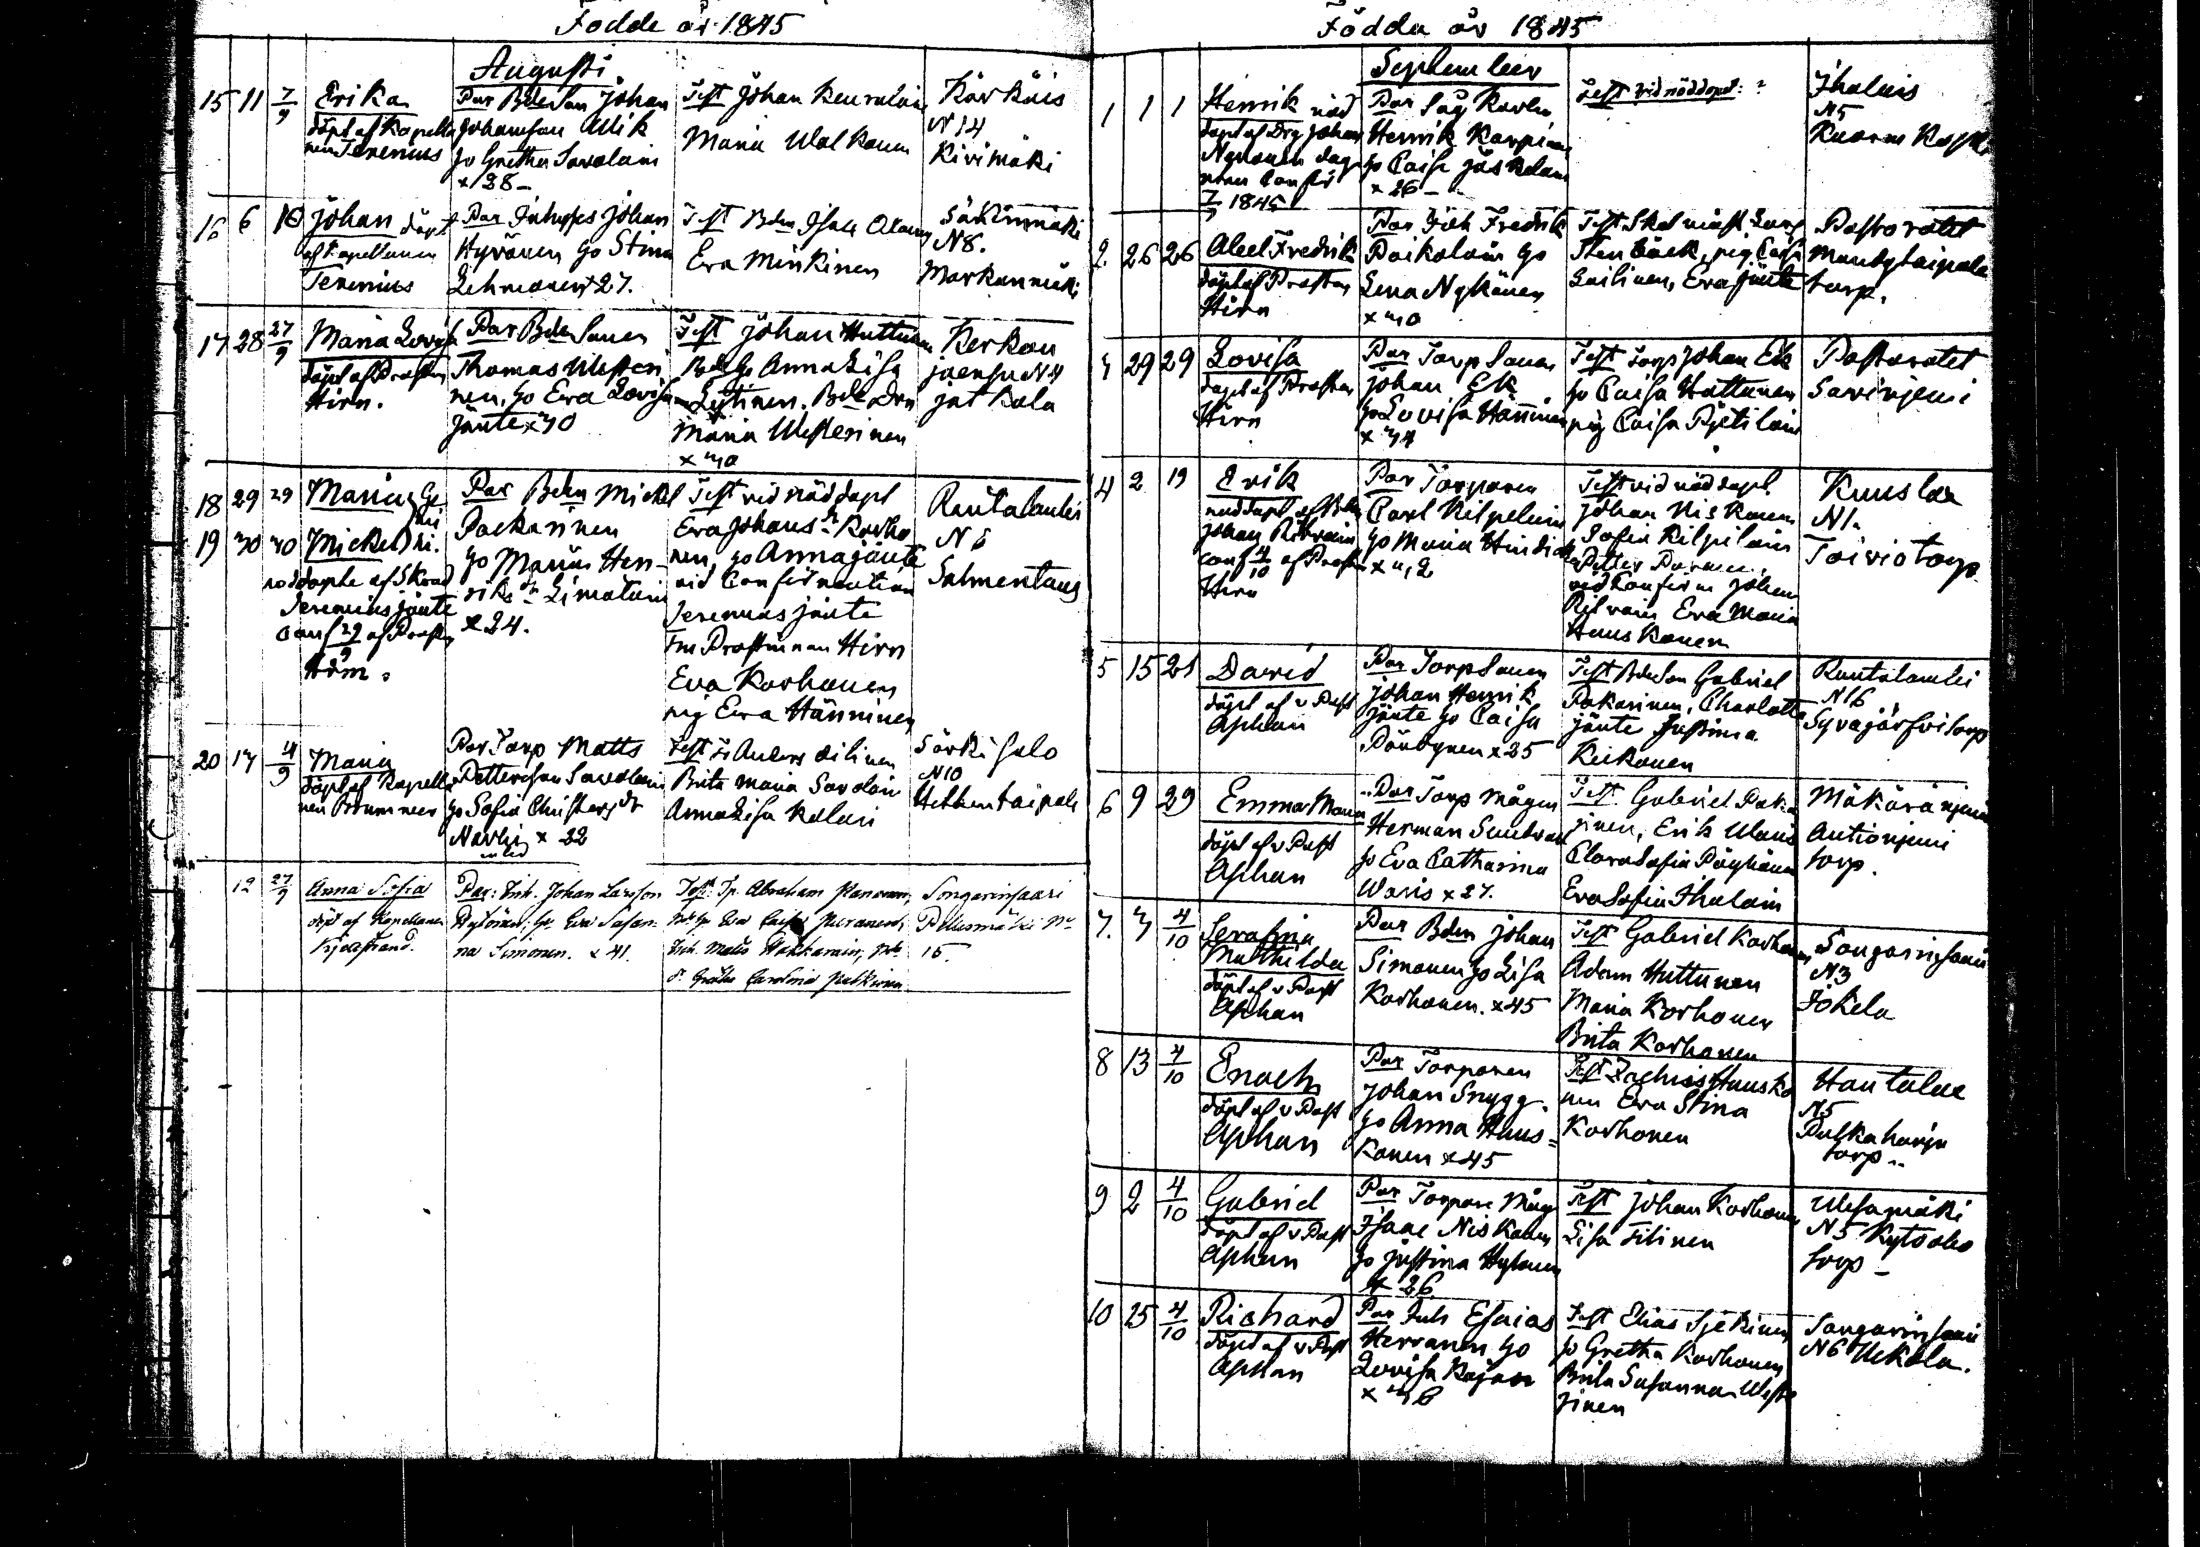 Födde år 1845
Augusti
15 11 7/9 Erika
döpt af Kapella
nen Jerenius
Par Bdeson Johan
Johansson Ulik
ho Gretha Savolain
x 28 -
Test Johan Keuralain
Maria Walkonen
Kärkäis
N 14
Kivimäki
16 6 10 Johan döpt
af Kapellanen
Jerenius
Par Inhyses Johan
Hyvönen ho Stina
Lehmonen x 27.
Test Bdn Isak
Eva Minkinen
N 8.
17 28 27/9 Maria Lovisa
döpt af Prosten
Hirn.
Par Bde Sonen
Thomas Westeri
nen, ho Eva Lovisa
Jänte x 30
Test Johan Huttunen
Anna Lisa
Maria Westerinen
x 30
Kerkon
joensu N 4
jat kala
18 29 29 Maria
19 30 30 Mickel
nöddöpte af
Jerenius jänte
conf 29/9 af Prosten
Hirn.
Par Bdn Mickel
Packarinen
ho Maria Hen-
riks dr Limatain
x 24.
Test vid nöddopt
Eva Johans dr Korho
nen, ho Anna jänte
vid Confirmation
Jerenius jänte
Fru Prostinnan Hirn
Eva Korhonen
pig Eva Hänninen
Rautalambi
N 6
Salmentaus
20 17 4/9 Maria
döpt af Kapella
nen Brummer
Par Torp Matts
Pettersson Savolain
ho Sofia Christers dr
Navhi x 22
Test Anders
Brita Maria Savolain
Anna Lisa Kalain
Särkisalo
N 10
Hethentaipale
12 27/9 Anna Sofia
döpt af Kapellanen
Kjellstrand.
Par: Inh. Johan Larsson
Hytönen, ho Eva Susan-
na Simonen. x 41.
Test: Tp. Abraham Manninen,
Eva Caisa Puranen,
Inh. Matts Hakkarain,
dr. Gretha Carolina Pulkinen
Songarinsaari
Pellesmäki No
15.
Födda år 1845
September
1 1 1 Henrik nöd
döpt af Drg Johan
Nykänen
Conf
7/9 1845
Par
Henrik Karpinen
ho Caisa Jäskelain
x 26 -
Test vid nöddopet: ?
Ihalais
N 5
Kuorne Koski
2. 26 26 Abel Fredrik
döpt af Prosten
Hirn
Par Inh Fredrik
Poikolain ho
Lena Nykänen
x 30
Test
Stenbäck, pig Caisa
Lailinen, Eva jänte
Pastoratet
Mandytaipale
torp.
3 29 29 Lovisa
döpt af Prosten
Hirn
Par Torp Sonen
Johan Ek
ho Lovisa Hänninen
x 34
Test Torp Johan Ek
ho Caisa Huttunen
pig Caisa Pjetilain
Pastoratet
Savinjemi
4 2 19 Erik
nöddöpt af
Johan Ritvain
conf 4/10 af Prosten
Hirn
Par Torparen
Carl Kilpelain
ho Maria Hindich
x 32
Test vid nöddopt.
Johan Niskanen
Sofia Kilpilain
Petter
vid Confirm Johan
Ritvain Eva Maria
Huuskonen
Kuuslax
N 1.
Toivio torp
5 15 21 David
döpt af v Past
Asphan
Par Torp Sonen
Johan Henrik
jänte ho Caisa
Pöndynen x 25
Test Bdeson Gabriel
Pakarinen, Charlotta
jänte Justina
Keikonen
Rautalambi
N 16
Syvajärfvi torp
6 9 29 Emma Maria
döpt af v Past
Asphan
Par Torp mågen
Herman Sundvall
ho Eva Catharina
Waris x 27.
Test Gabriel Paka
rinen, Erik Waris
Clara Sofia Pöyhönen
Eva Sofia Ihalain
Mökäränjemi
Autionjemi
torp.
7. 3 4/10 Serafina
Mathilda
döpt af v Past
Asphan
Par Bdn Johan
Simonen ho Lisa
Korhonen. x 45
Test Gabriel Korhonen
Adam Huttunen
Maria Korhonen
Brita Korhonen
Songarinsaari
N 3
Jokela
8 13 4/10 Enoch
döpt af v Past
Asphan
Par Torparen
Johan Snygg
ho Anna Huus=
konen x 45
Test Zachris Huusko
nen Eva Stina
Korhonen
Hautalax
N 5
Pulkaharju
torp ..
9 2 4/10 Gabriel
döpt af v Past
Asphan
Par Torpare Måg
Isaac Niskanen
ho Justina Hytönen
x 26.
Test Johan Korhonen
Lisa Tilinen
Wesamäki
N 5 Kytöaho
torp -
10 25 4/10 Richard
döpt af v Past
Asphan
Par Inh Esaias
Herranen ho
Lovisa Kajan
x 36
Test Elias Sjekinen
ho Gretha Korhonen
Brita Susanna Weste
rinen
Songarinsaari
N 6 Ukkola.